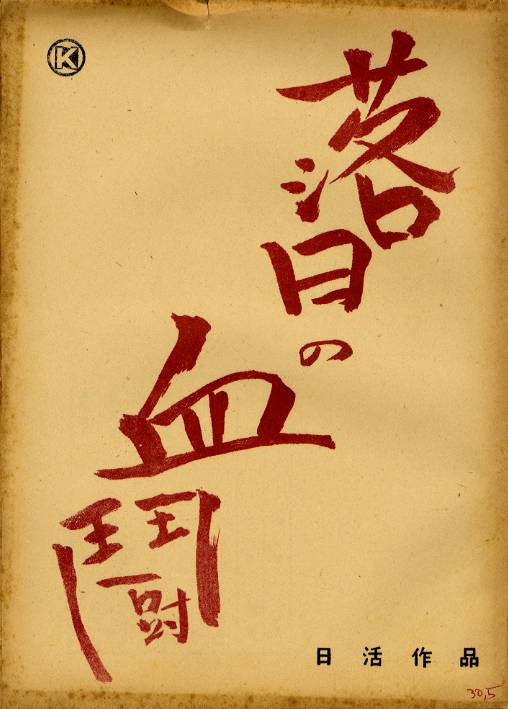 K
落日の
血鬪
日活作品
30,5